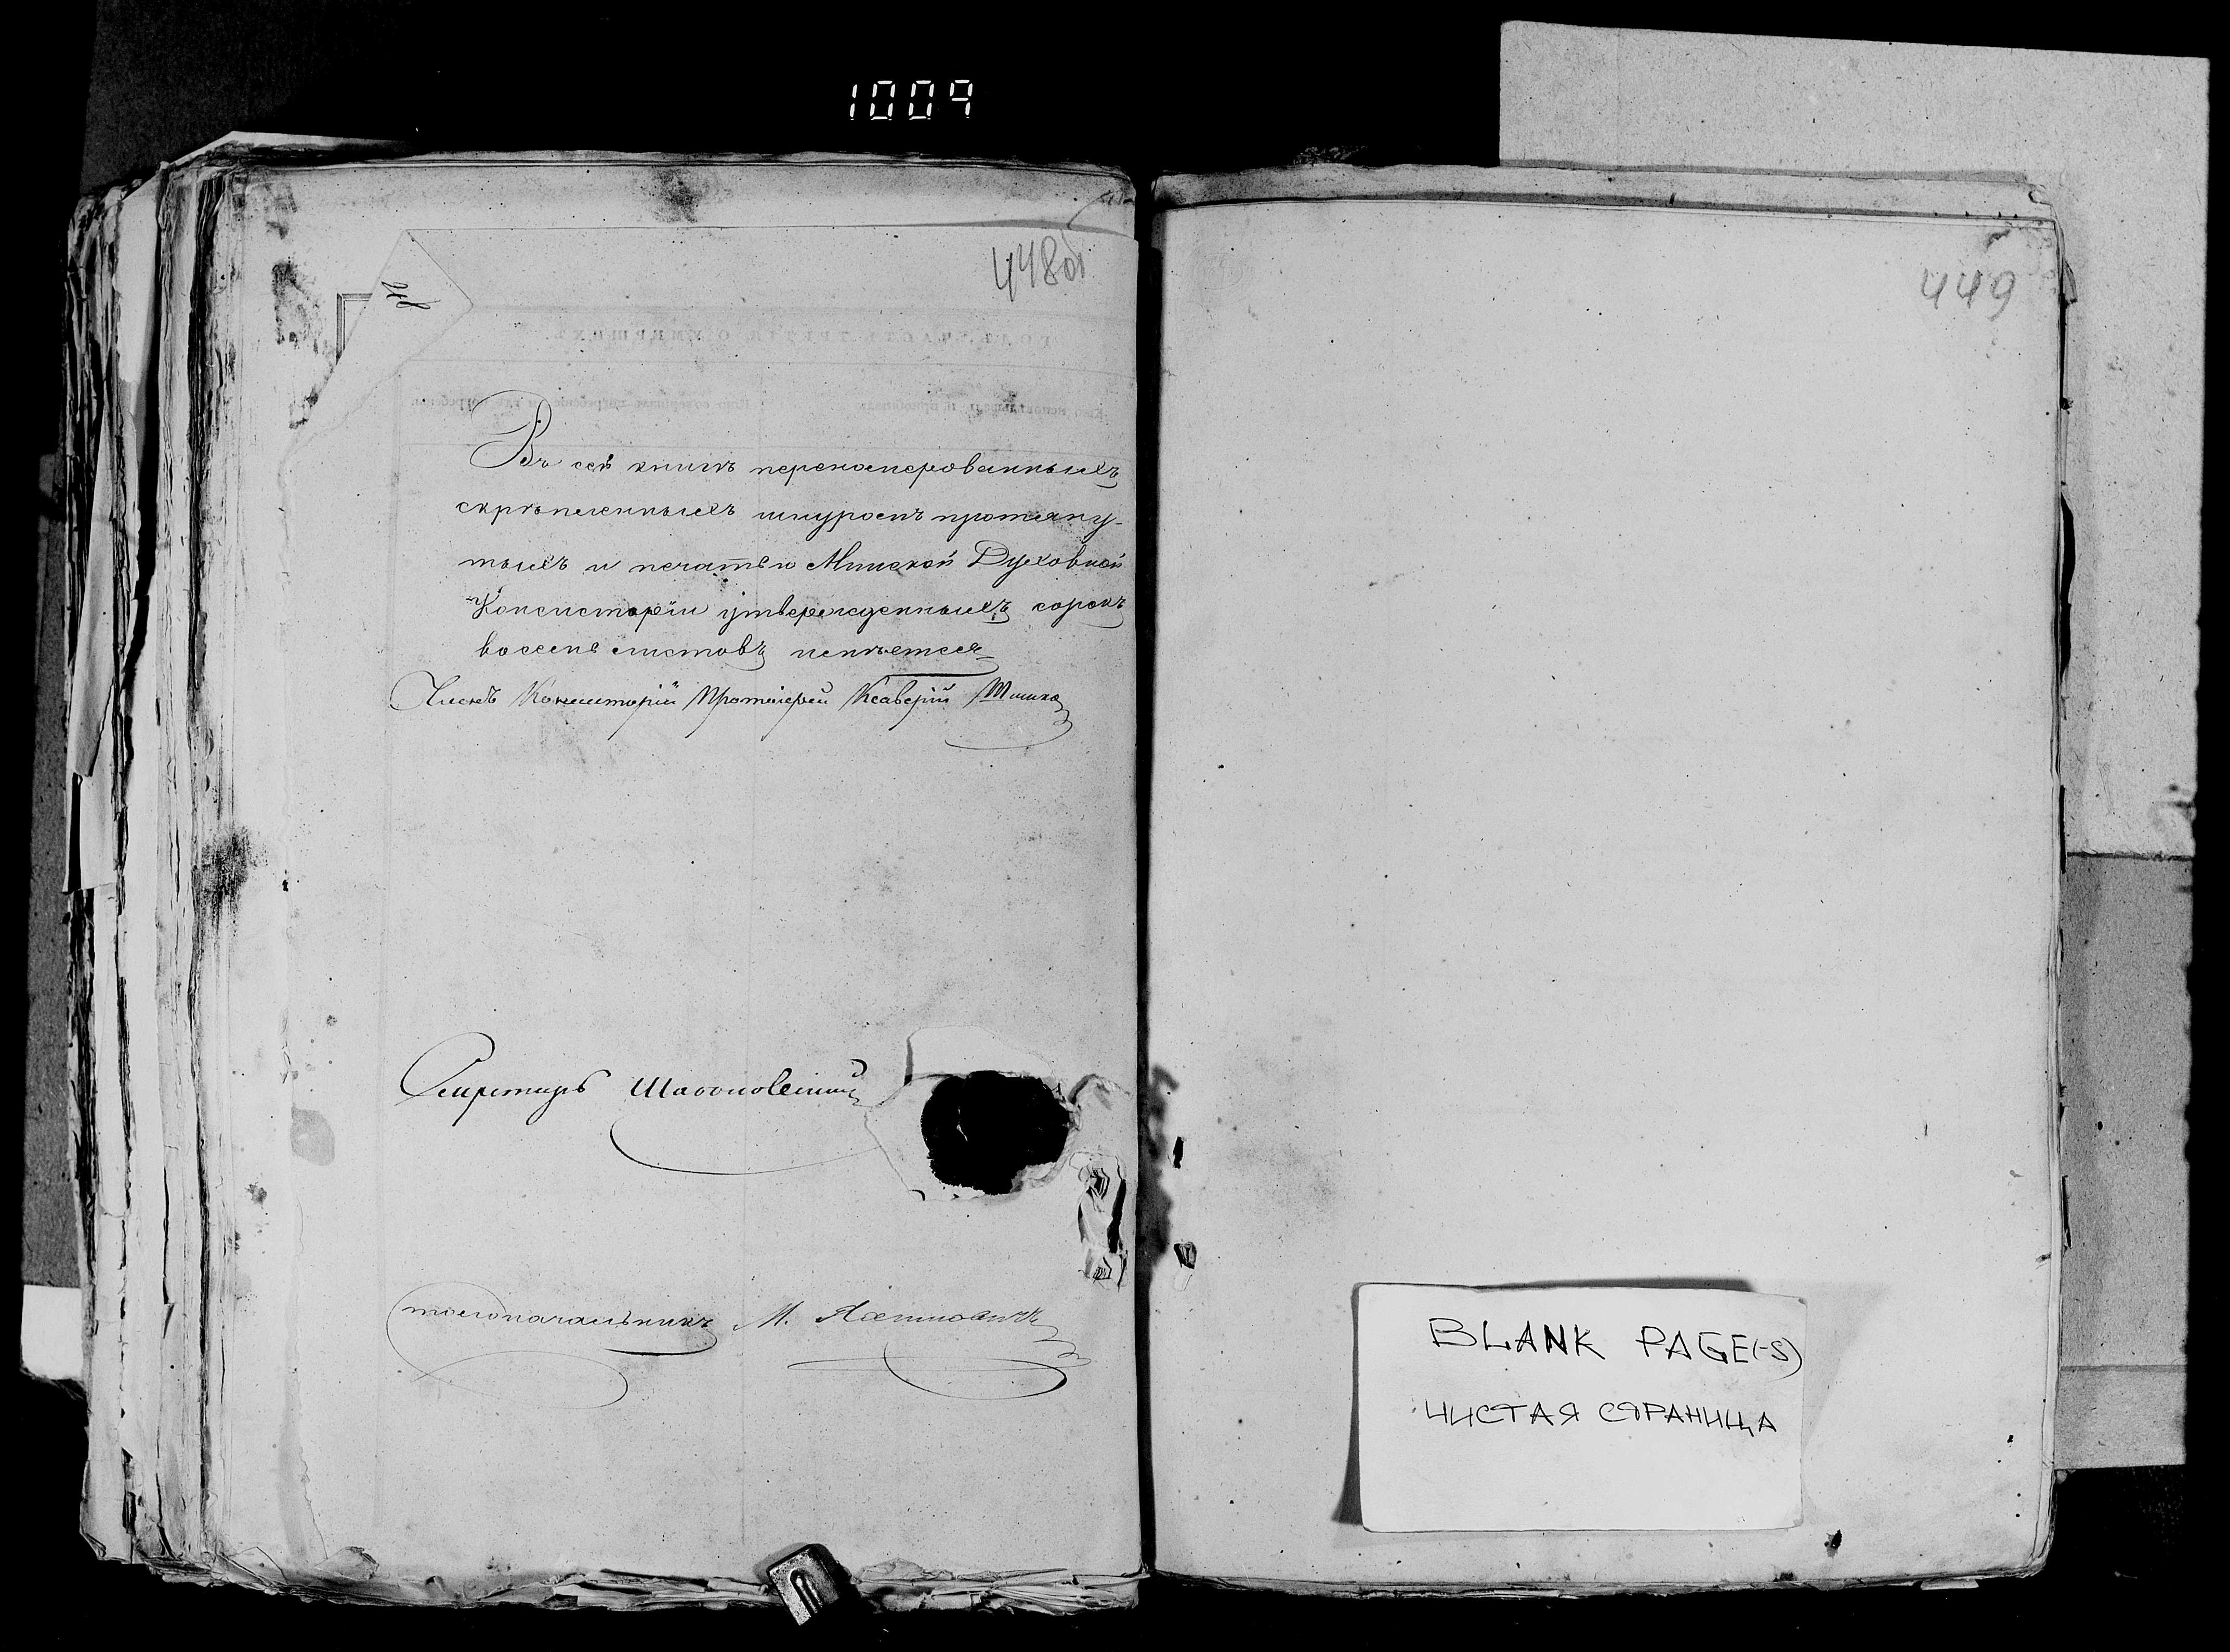 1009
448об
48
Въ сей книгѣ перенамерованныхъ
скрѣпленныхъ шнуромъ протяну-
тыхъ и печатью Минской Духовной
Консисторіи утвержденныхъ сорокъ
восемь листовъ имѣется
Членъ Консисторіи Протоіерей Ксаверій
Секретарь
Столоначальникъ М.
449
BLANK PAGE(-S)
ЧИСТАЯ СТРАНИЦА